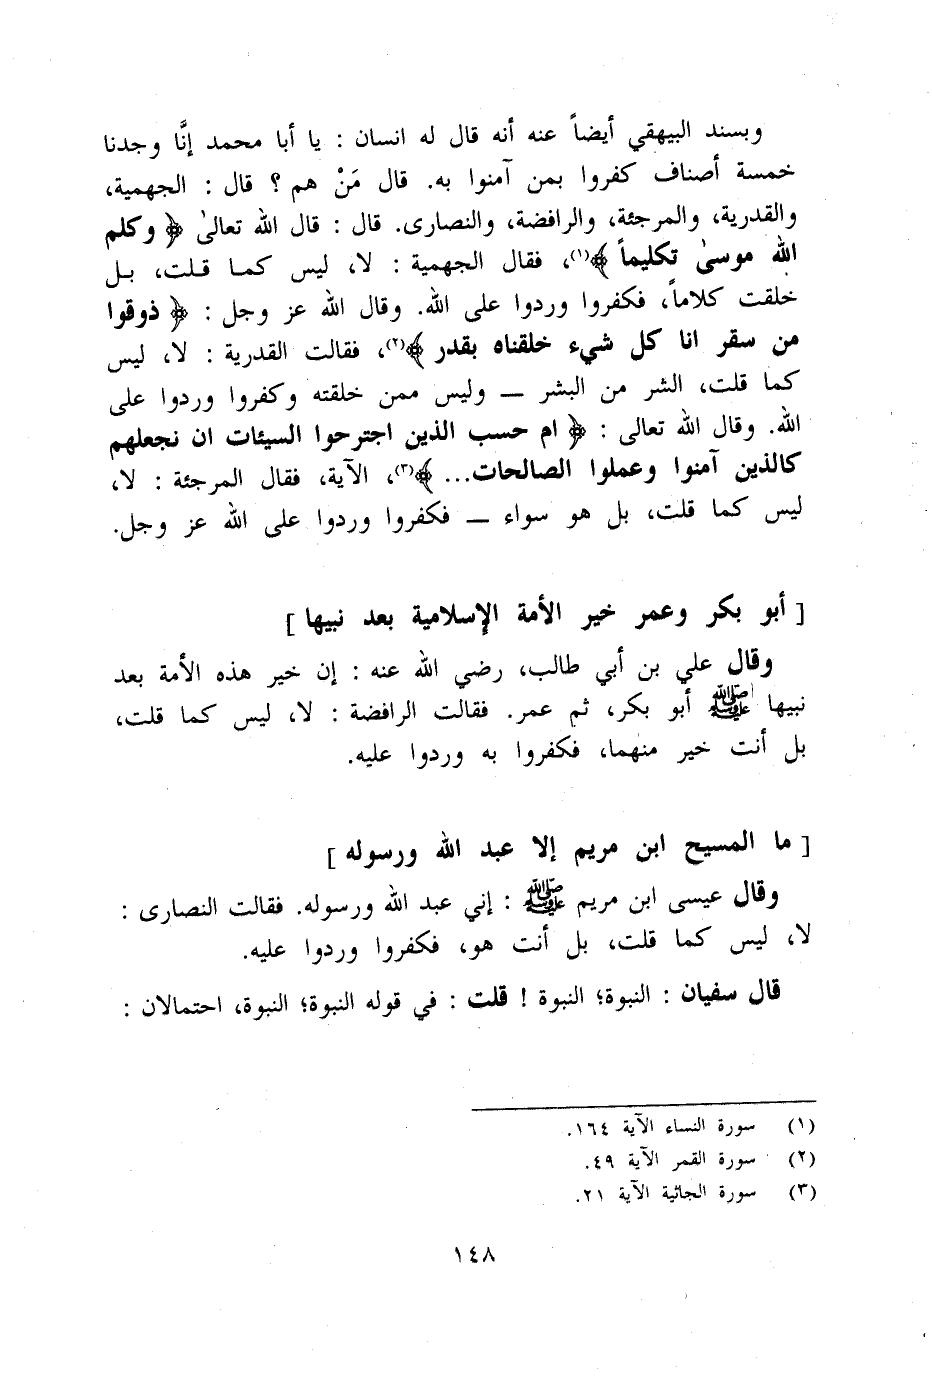 وبسند البيهقي أيضاً عنه أنه قال له انسان : يا أبا محمد إنَّا وجدنا
خمسة أصناف كفروا بمن آمنوا به. قال مَنْ هم ؟ قال : الجهمية،
والقدرية، والمرجئة، والرافضة، والنصارى. قال : قال الله تعالىٰ ﴿ وكلم
الله موسىٰ تكليماً ﴾(١)، فقال الجهمية : لا، ليس كما قلت، بل
خلقت كلاماً، فكفروا وردوا على الله. وقال الله عز وجل : ﴿ ذوقوا
من سقر انا كل شيء خلقناه بقدر ﴾(٢)، فقالت القدرية : لا، ليس
كما قلت، الشر من البشر ــ وليس ممن خلقته وكفروا وردوا على
الله. وقال الله تعالى : ﴿ ام حسب الذين اجترحوا السيئات ان نجعلهم
كالذين آمنوا وعملوا الصالحات... ﴾(٣)، الآية، فقال المرجئة : لا،
ليس كما قلت، بل هو سواء ــ فكفروا وردوا على الله عز وجل.
[ أبو بكر وعمر خير الأمة الإسلامية بعد نبيها ]
وقال علي بن أبي طالب، رضي الله عنه : إن خير هذه الأمة بعد
نبيها ﷺ أبو بكر، ثم عمر. فقالت الرافضة : لا، ليس كما قلت،
بل أنت خير منهما، فكفروا به وردوا عليه.
[ ما المسيح ابن مريم إلا عبد الله ورسوله ]
وقال عيسى ابن مريم ﷺ : إني عبد الله ورسوله. فقالت النصارى :
لا، ليس كما قلت، بل أنت هو، فكفروا وردوا عليه.
قال سفيان : النبوة؛ النبوة ! قلت : في قوله النبوة؛ النبوة، احتمالان :
(١) سورة النساء الآية ١٦٤.
(٢) سورة القمر الآية ٤٩.
(٣) سورة الجاثية الآية ٢١.
١٤٨